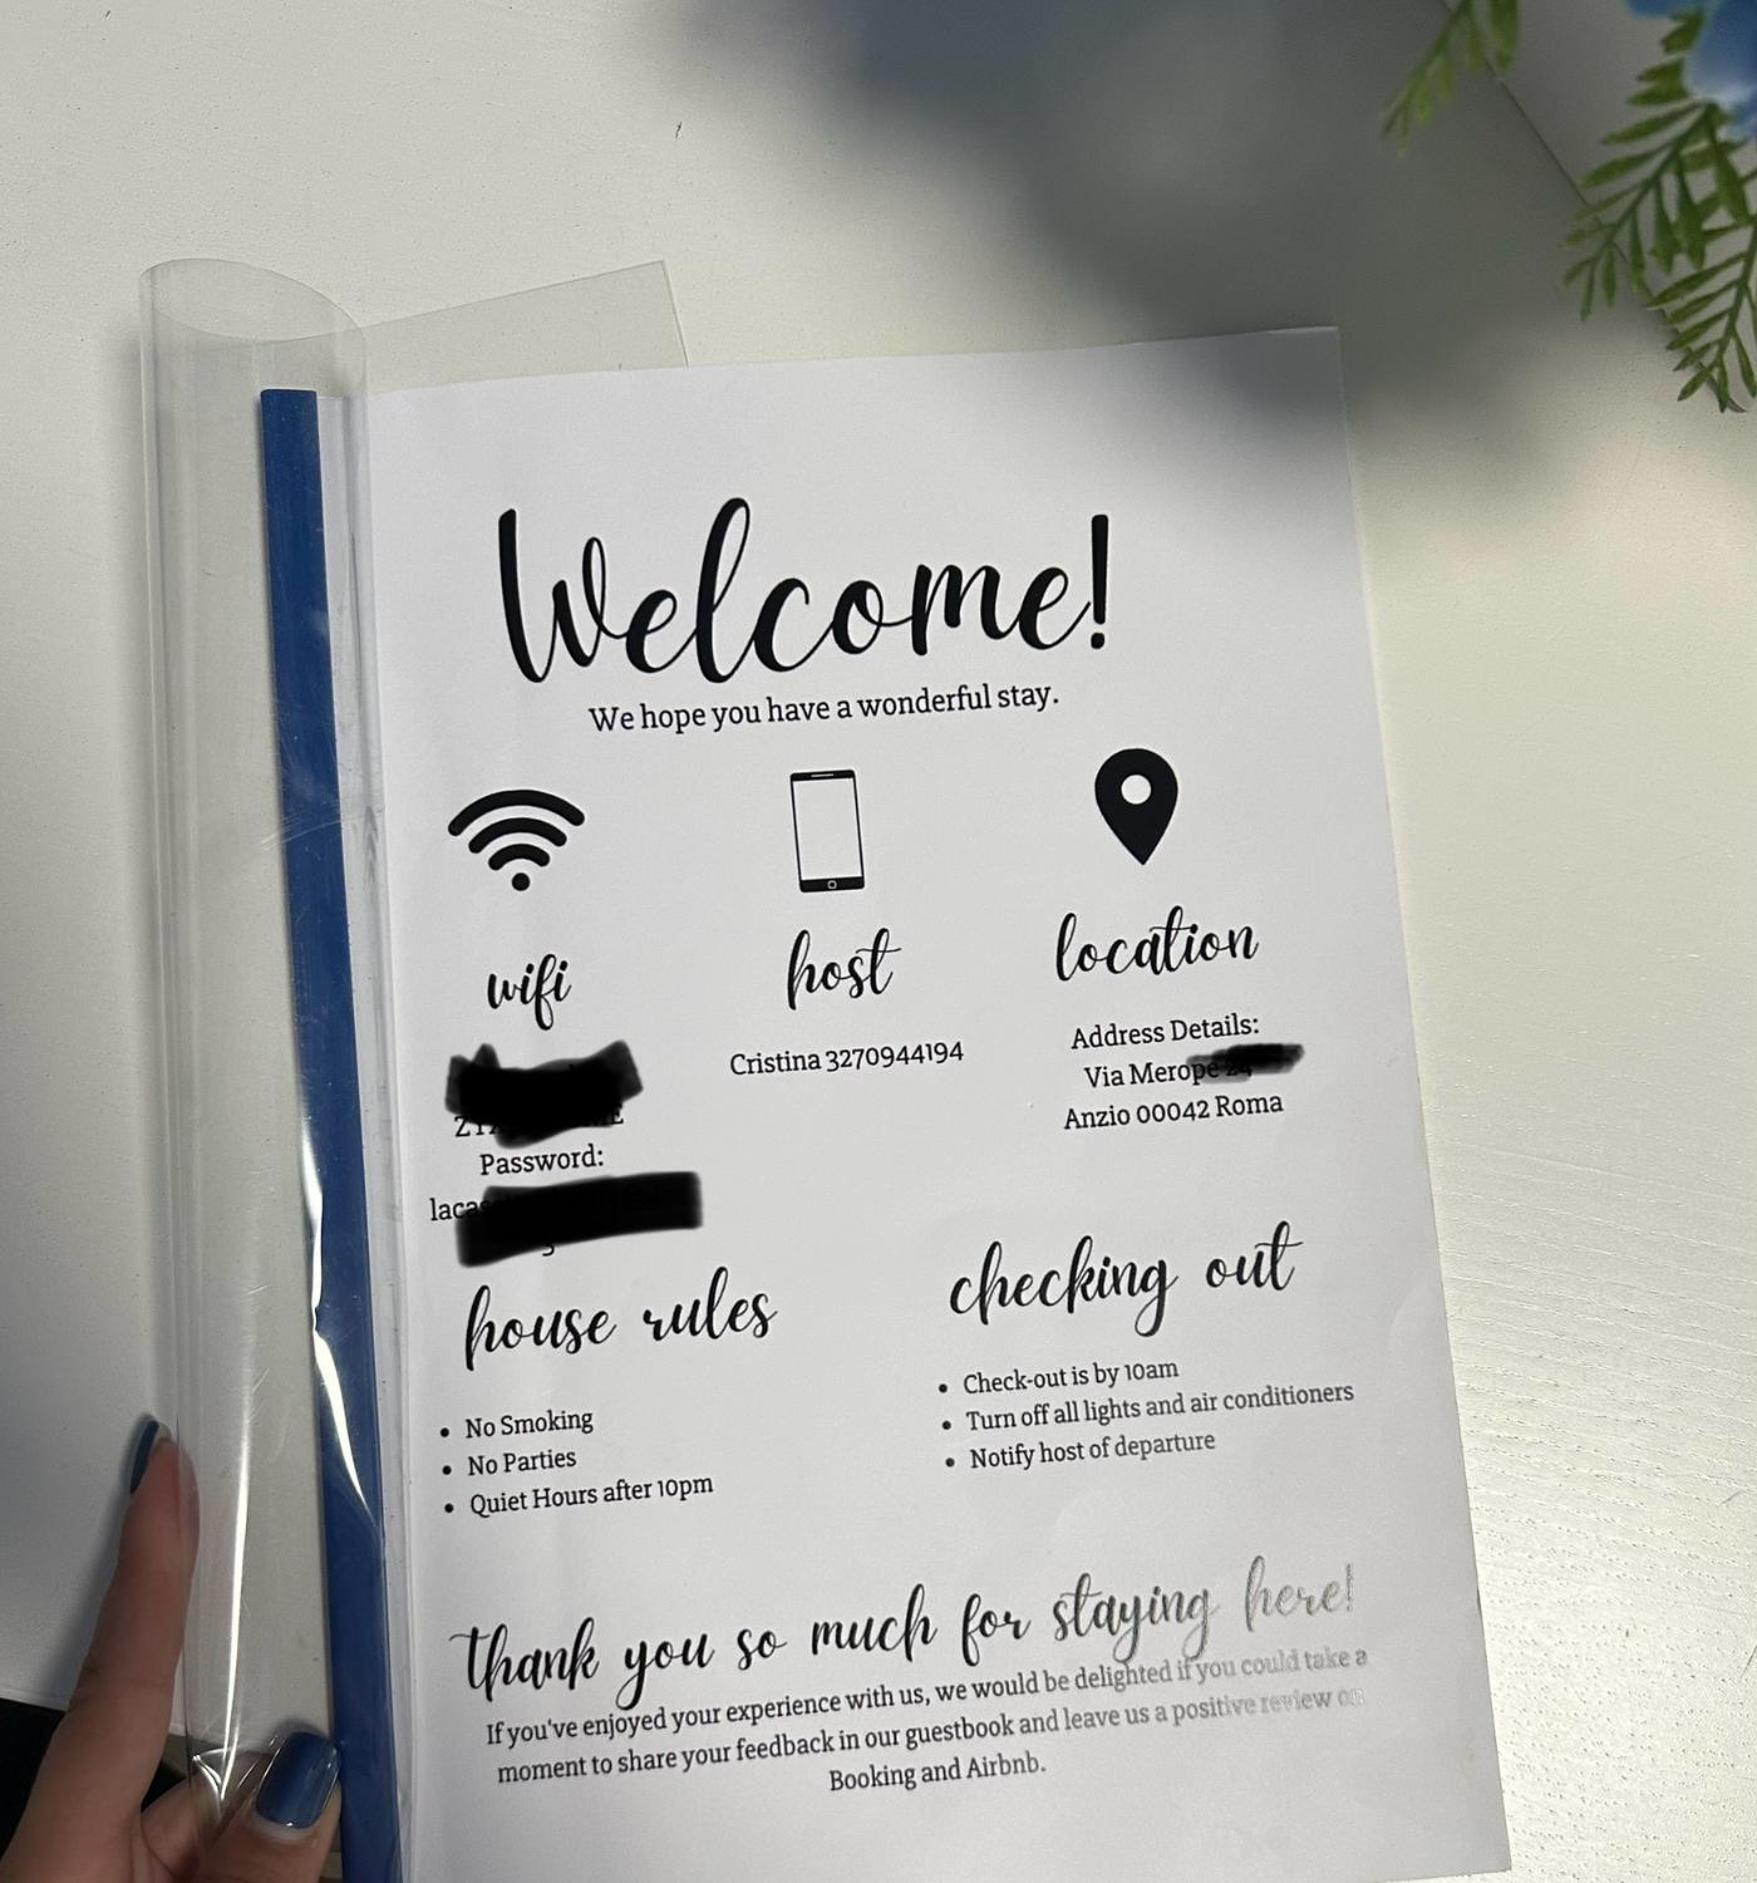 Welcome!
We hope you have a wonderful stay.
wifi
host
location
Cristina 3270944194
Address Details:
Via Merope
Anzio 00042 Roma
Password:
house rules
No Smoking
No Parties
Quiet Hours after 10pm
checking out
Check-out is by 10am
Turn off all lights and air conditioners
Notify host of departure
thank you so much for staying here!
If you've enjoyed your experience with us, we would be delighted if you could take a
moment to share your feedback in our guestbook and leave us a positive review on
Booking and Airbnb.